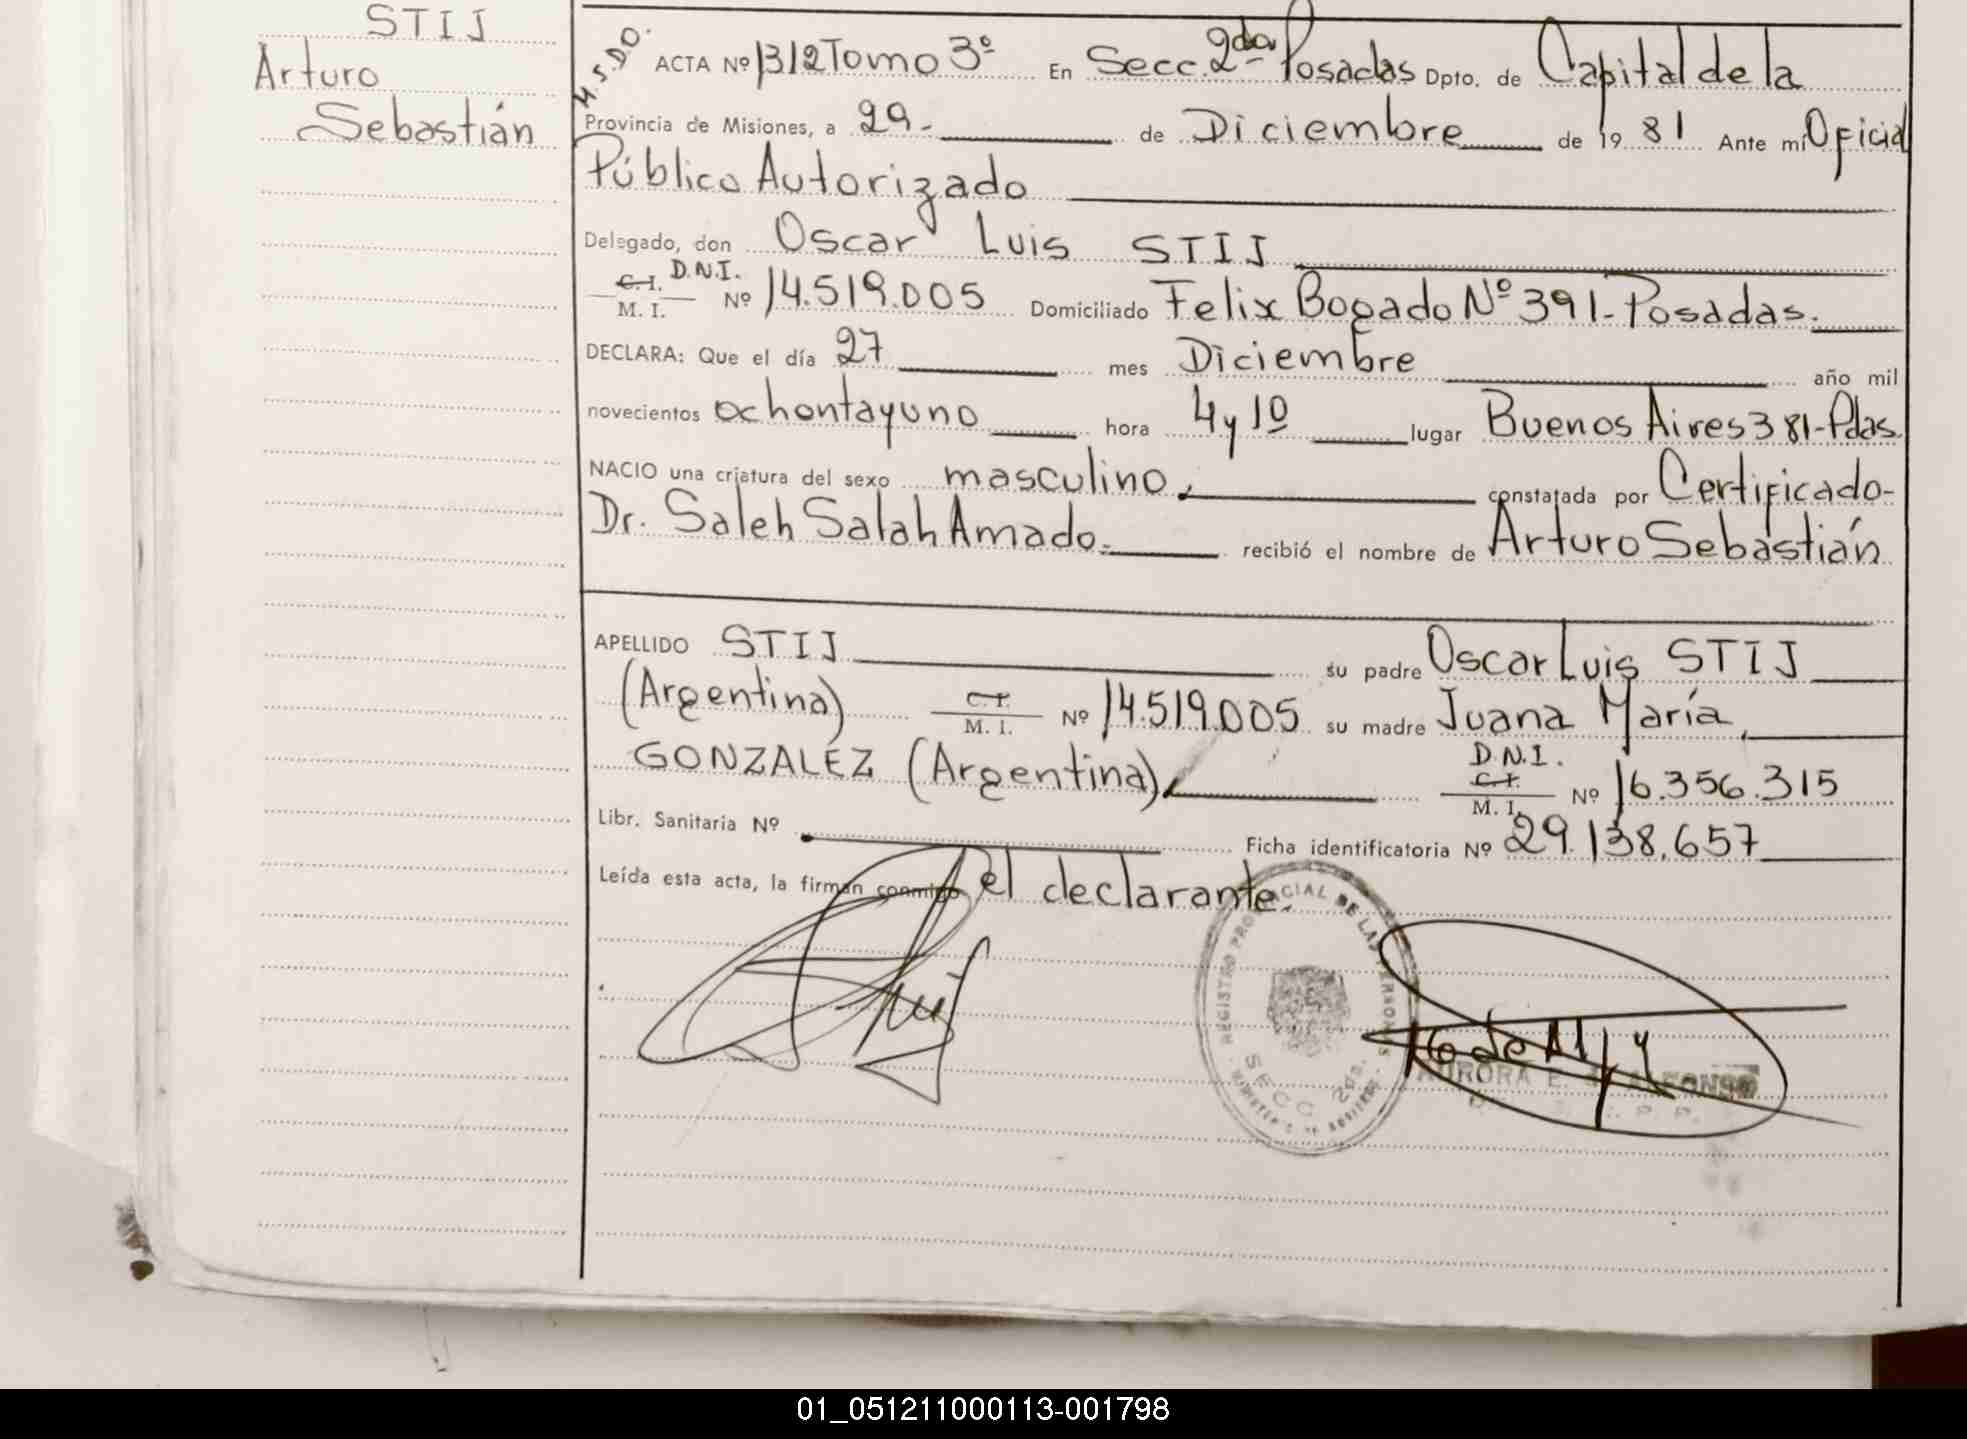 STIJ
Arturo
Sebastián
H.S.D.O.
ACTA Nº 1312 Tomo 3º En Secc. 2da Posadas Dpto. de Capital de la
Provincia de Misiones, a 29.- de Diciembre de 19 81 Ante mí Oficial
Público Autorizado
Delegado, don Oscar Luis STIJ
C.I. D.N.I.
M. I. Nº 14.519.005 Domiciliado Felix Bogado Nº 391-Posadas.
DECLARA: Que el día 27 mes Diciembre año mil
novecientos ochentayuno hora 4 y 10 lugar Buenos Aires 381-Pdas.
NACIO una criatura del sexo masculino, constatada por Certificado-
Dr. Saleh Salah Amado.- recibió el nombre de Arturo Sebastián
APELLIDO STIJ su padre Oscar Luis STIJ
(Argentina) C.I. M. I. Nº 14.519.005 su madre Juana María
GONZALEZ (Argentina) D.N.I. C.I. M. I. Nº 16.356.315
Libr. Sanitaria Nº Ficha identificatoria Nº 29.138.657
Leída esta acta, la firman conmigo el declarante.
REGISTRO PROVINCIAL DE LAS PERSONAS
SECC. 2da.
AURORA E. ALFONSO
01_051211000113-001798